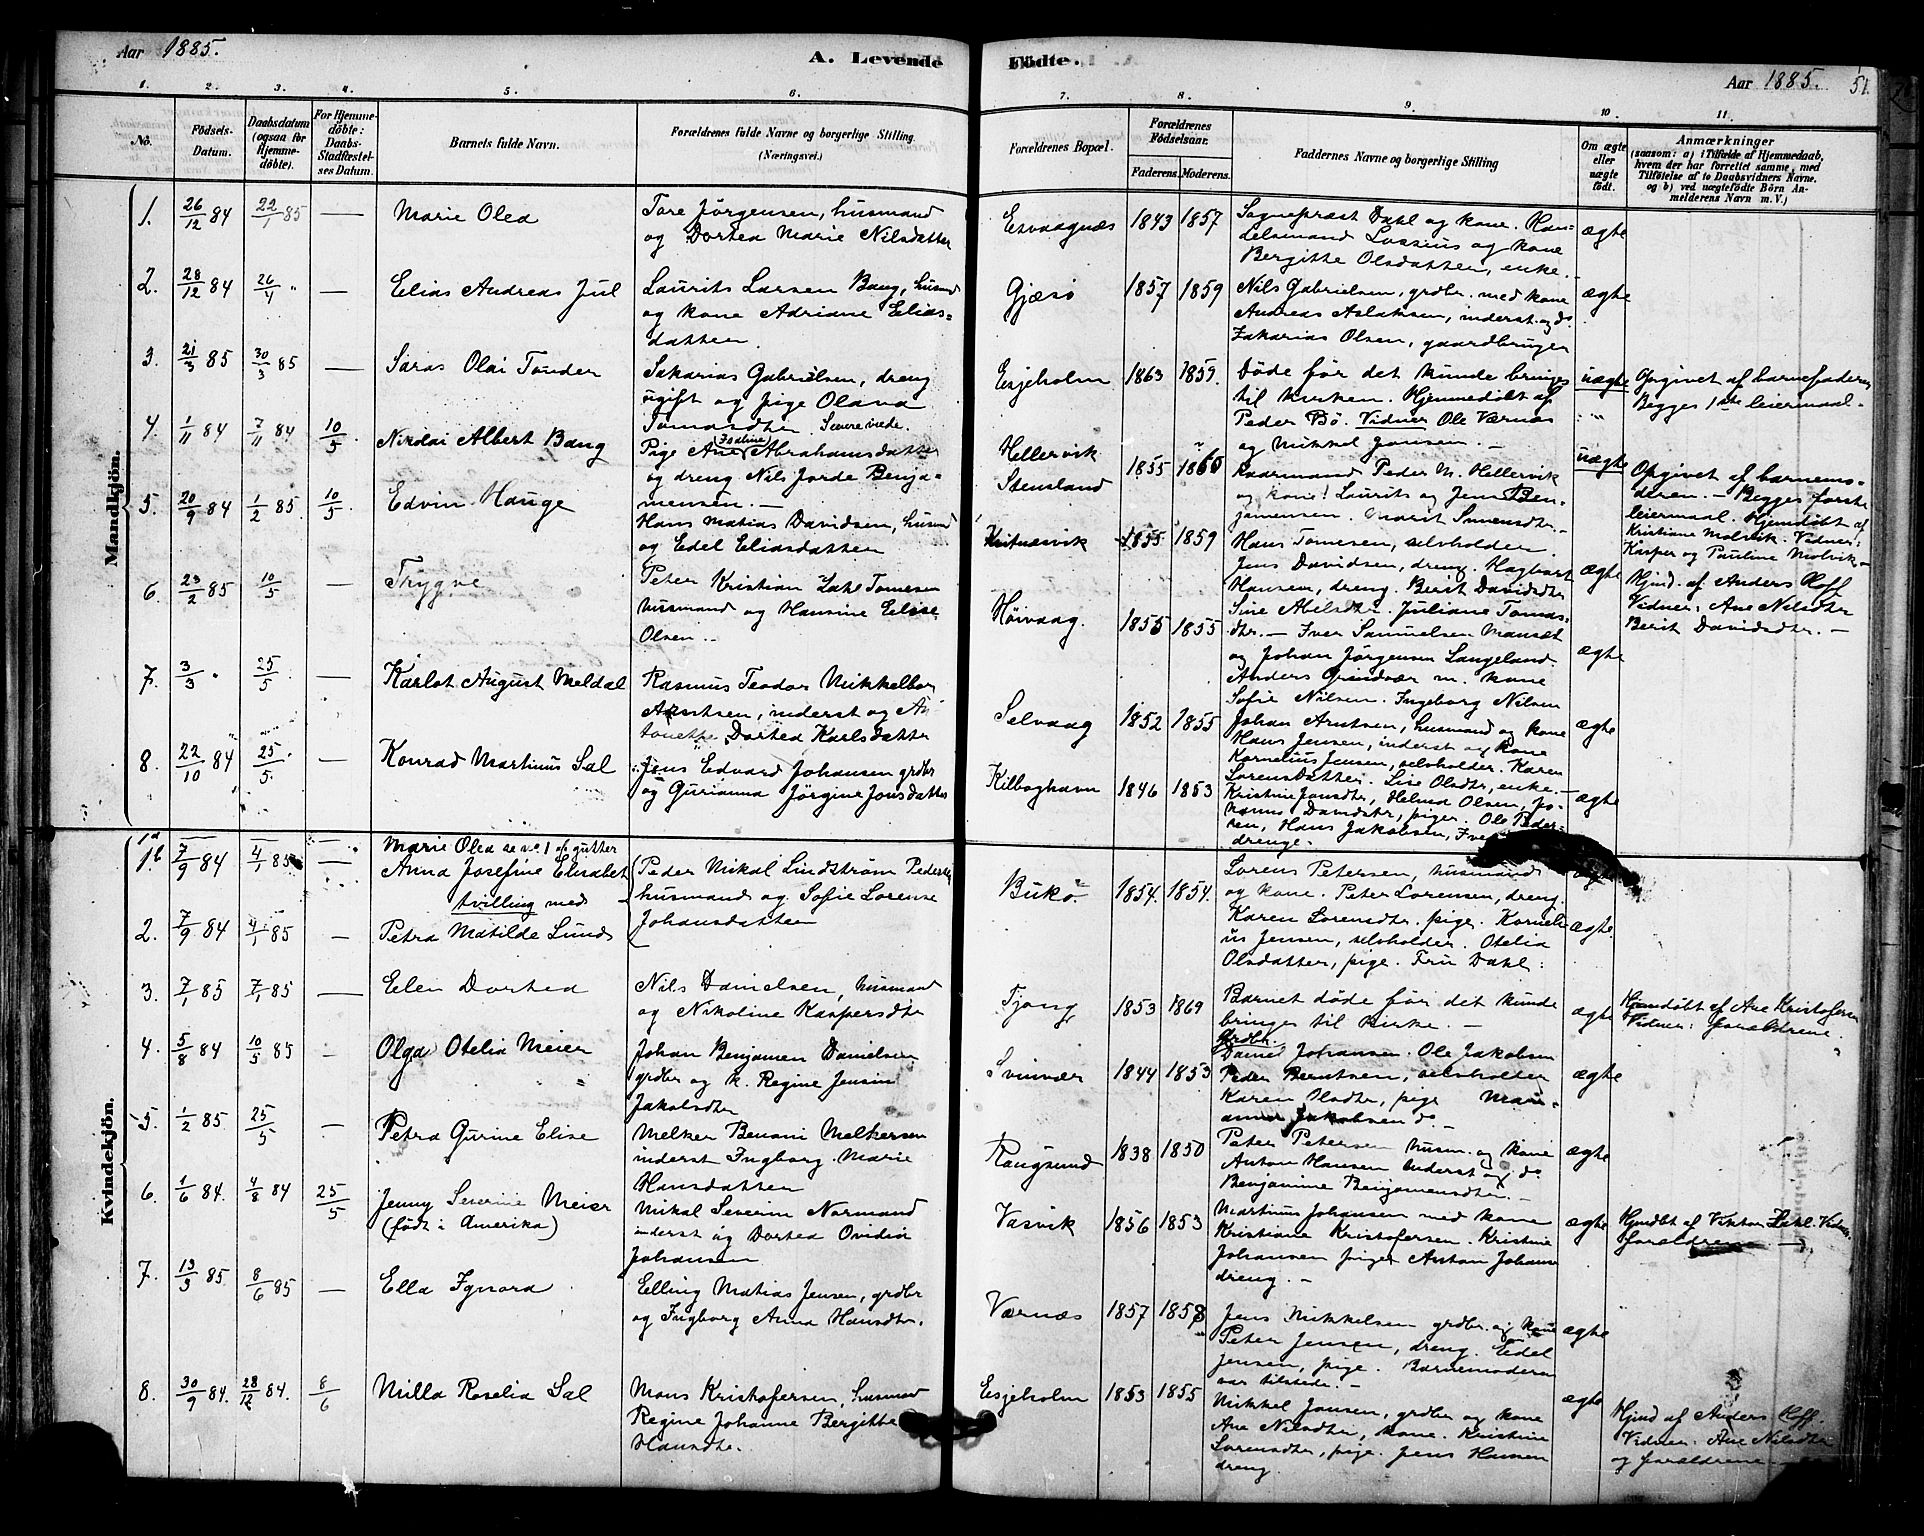 Aar 1885.
A. Levende Födte.
Aar 1885. 51.
1. 2. 3. 4. 5. 6. 7. 8. 9. 10. 11.
No.
Födsels-Datum.
Daabsdatum (ogsaa for Hjemme-döbte).
For Hjemme-döbte: Daabs-Stadfæstel-ses Datum.
Barnets fulde Navn.
Forældrenes fulde Navne og borgerlige Stilling.
(Næringsvei.)
Forældrenes Bopæl.
Forældrenes Födselsaar.
Faderens. Moderens.
Faddernes Navne og borgerlige Stilling
Om ægte eller uægte födt.
Anmærkninger
(saasom: a) i Tilfælde af Hjemmedaab, hvem der har forrettet samme, med Tilföielse af to Daabsvidners Navne. og b) ved uægtefödte Börn An-melderens Navn m. V.)
Mandkjön.
1. 26/12 84 22/1 85 — Marie Olea
Tore Jörgensen, husmand
og Dortea Marie Nilsdatter
Esvaagnæs 1843 1857
Sognepræst Dahl og kone. Han-
delsmand Lossius og kone
Bergitte Olsdatter, enke. -
ægte
2. 28/12 84 26/4 " — Elias Andreas Jul
Laurits Larsen Bang, husmd
og kone Adriane Elias=
datter.
Gjæsö 1857 1859
Nils Gabrielsen, grdbr. med kone
Andreas Aslaksen, inderst og do.
Zakarias Olsen, gaardbruger
ægte
3. 21/3 85 30/3 85 — Saras Olai Tönder
Sakarias Gabrielsen, dreng
ugift og pige Olava
Tomasdtr.
Esjeholm 1863 1859.
Döde för det kunde bringes
til kirken. Hjemmedöbt af
Peder Bö. Vidner Ole Værnæs
og Mikkel Jonsen. -
uægte
Opgivet af barnefaderen
Begges 1ste leiermaal -
4. 1/11 84 7/11 84 10/5 Nirdai Albert Bang
Pige Ane Abrahamsdatter
og dreng Nils Jorde Benja-
mensen. -
Hellervik
Stensland
1855 1860
Kaarmand Peder M. Hellervik
og kone! Laurits og Jens Ben-
jamensen. Marit Simensdtr -
uægte
Opgivet af barnemo-
deren. - Begges første
leiermaal. Hjemdöbt af
Kristiane Molvik. Vidner:
Kasper og Pauline Molvik -
5. 20/9 84 1/2 85. 10/5 Edvin Hauge
Hans Matias Davidsen, husmd
og Edel Eliasdatter
1855 1859
Hans Tomesen, selvholder.
Jens Davidsen, dreng. Hagbart
Hansen, dreng. Berit Davidsdtr
ægte
Hjmd. af Anders Hoff
Vidner: Ane Nilsdtr
Berit Davidsdtr. -
6. 23/2 85 10/5 — Trygve
Peter Kristian Zahl Tomesen
husmand og Hansine Elise
Olsen. -
Höivaag. 1855 1855
Sine Abelsdtr. Juliane Tomas-
dtr. - Iver Samuelsen Mansæt
og Johan Jörgensen Langeland
Anders Grindvær m. kone
ægte
7. 3/3 " 25/5 — Karlot August Meldal
Rasmus Teodor Mikkelbor
Arntsen, inderst og An
tonette Dortea Karlsdatter
Selvaag 1852 1855
Sofie Nilsen. Ingeborg Nilsen
Johan Arntsen, husmand og kone
Hans Jensen, inderst og kone
Kornelius Jensen, selvholder. Karen
ægte
8. 22/10 84 25/5 — Konrad Martinus Sal
Jens Edvard Johansen grdbr
og Gurianna Jörgine Jonsdatter
Kilboghavn 1846 1853
Lorensdatter. Lise Olsdtr, enke. -
Kristine Jonsdtr, Helma Olsen, Jo-
hanna Davidsdtr, piger. Ole Peder-
sen, Hans Jakobsen, Iver
drenge. -
ægte
Kvindekjön.
1a — — Marie Olea se No 1 af gutter
1b 7/9 84 4/1 85 — Anna Josefine Elisabet
tvilling med
Peder Mikal Lindström Pedersen
husmand og Sofie Lorense
Johansdatter
Bukö 1854. 1854.
Lorens Petersen, husmand
og kone. Peter Lorensen, dreng.
Karen Lorensdtr, pige. Korneli-
us Jensen, selvholder. Otelia
Olsdatter, pige. Fru Dahl:
2. 7/9 84 4/1 85 — Petra Matilde Lund
ægte.
3. 7/1 85 7/1 85 — Elen Dortea
Nils Danielsen, husmand
og Nikoline Kaspersdtr
Tjong 1853 1869
Barnet döde för det kunde
bringes til kirke. -
ægte
Hjemdöbt af Ane Kristofersen
Vidner: forældrene.
4. 5/8 84 10/5 85 — Olga Otelia Meier
Johan Benjamen Danielsen
grdbr og k. Regine Jensine
Jakobsdtr
Svinvær 1844 1853
Grdbr.
Daniel Johansen. Ole Jakobsen
Peder Berntsen, selvholder
Karen Olsdtr, pige Mari-
anna Jakobsen do. -
ægte
5. 1/2 85. 25/5 — Petra Gurine Elise
Melker Benoni Melkersen
inderst Ingborg Marie
Hansdatter
Rangsund 1838 1850
Peter Petersen husm. og kone
Anton Hansen inderst og do
Benjamine Benjamensdtr. -
ægte
6. 1/6 84. 4/8 84 25/5 Jenny Severine Meier
(født i Amerika)
Mikal Severin Normand
inderst og Dortea Ovidia
Johansen
Vasvik 1856 1853
Martinus Johansen med kone
Kristiane Kristofersen. Kristine
Johansen piger Anton Johans
dreng. -
ægte
Hjmdöbt af Viktor Dahl. Vidner
forældrene
7. 13/3 85 8/6 85 — Ella Ignora
Elling Matias Jensen, grdbr
og Ingborg Anna Hansdtr.
Værnæs 1857 1858
Jens Mikkelsen grdbr. og kone
Peter Jensen, dreng. Edel
Jensen, pige. Barnemoderen
var tilstede. -
ægte
8. 30/9 84. 28/12 84. 8/6 Milla Roselia Sal
Mons Kristofersen, husmand
Regine Johanne Bergitte
Hansdtr.
Esjeholm 1853 1855
Mikkel Jonsen, grdbr og kone
Ane Nilsdtr, kone. Kristine
Lorensdtr, pige. Jens Hansen
dreng.
ægte
Hjmd af Anders Hoff.
Vidner: Ane Nilsdtr
og forældrene